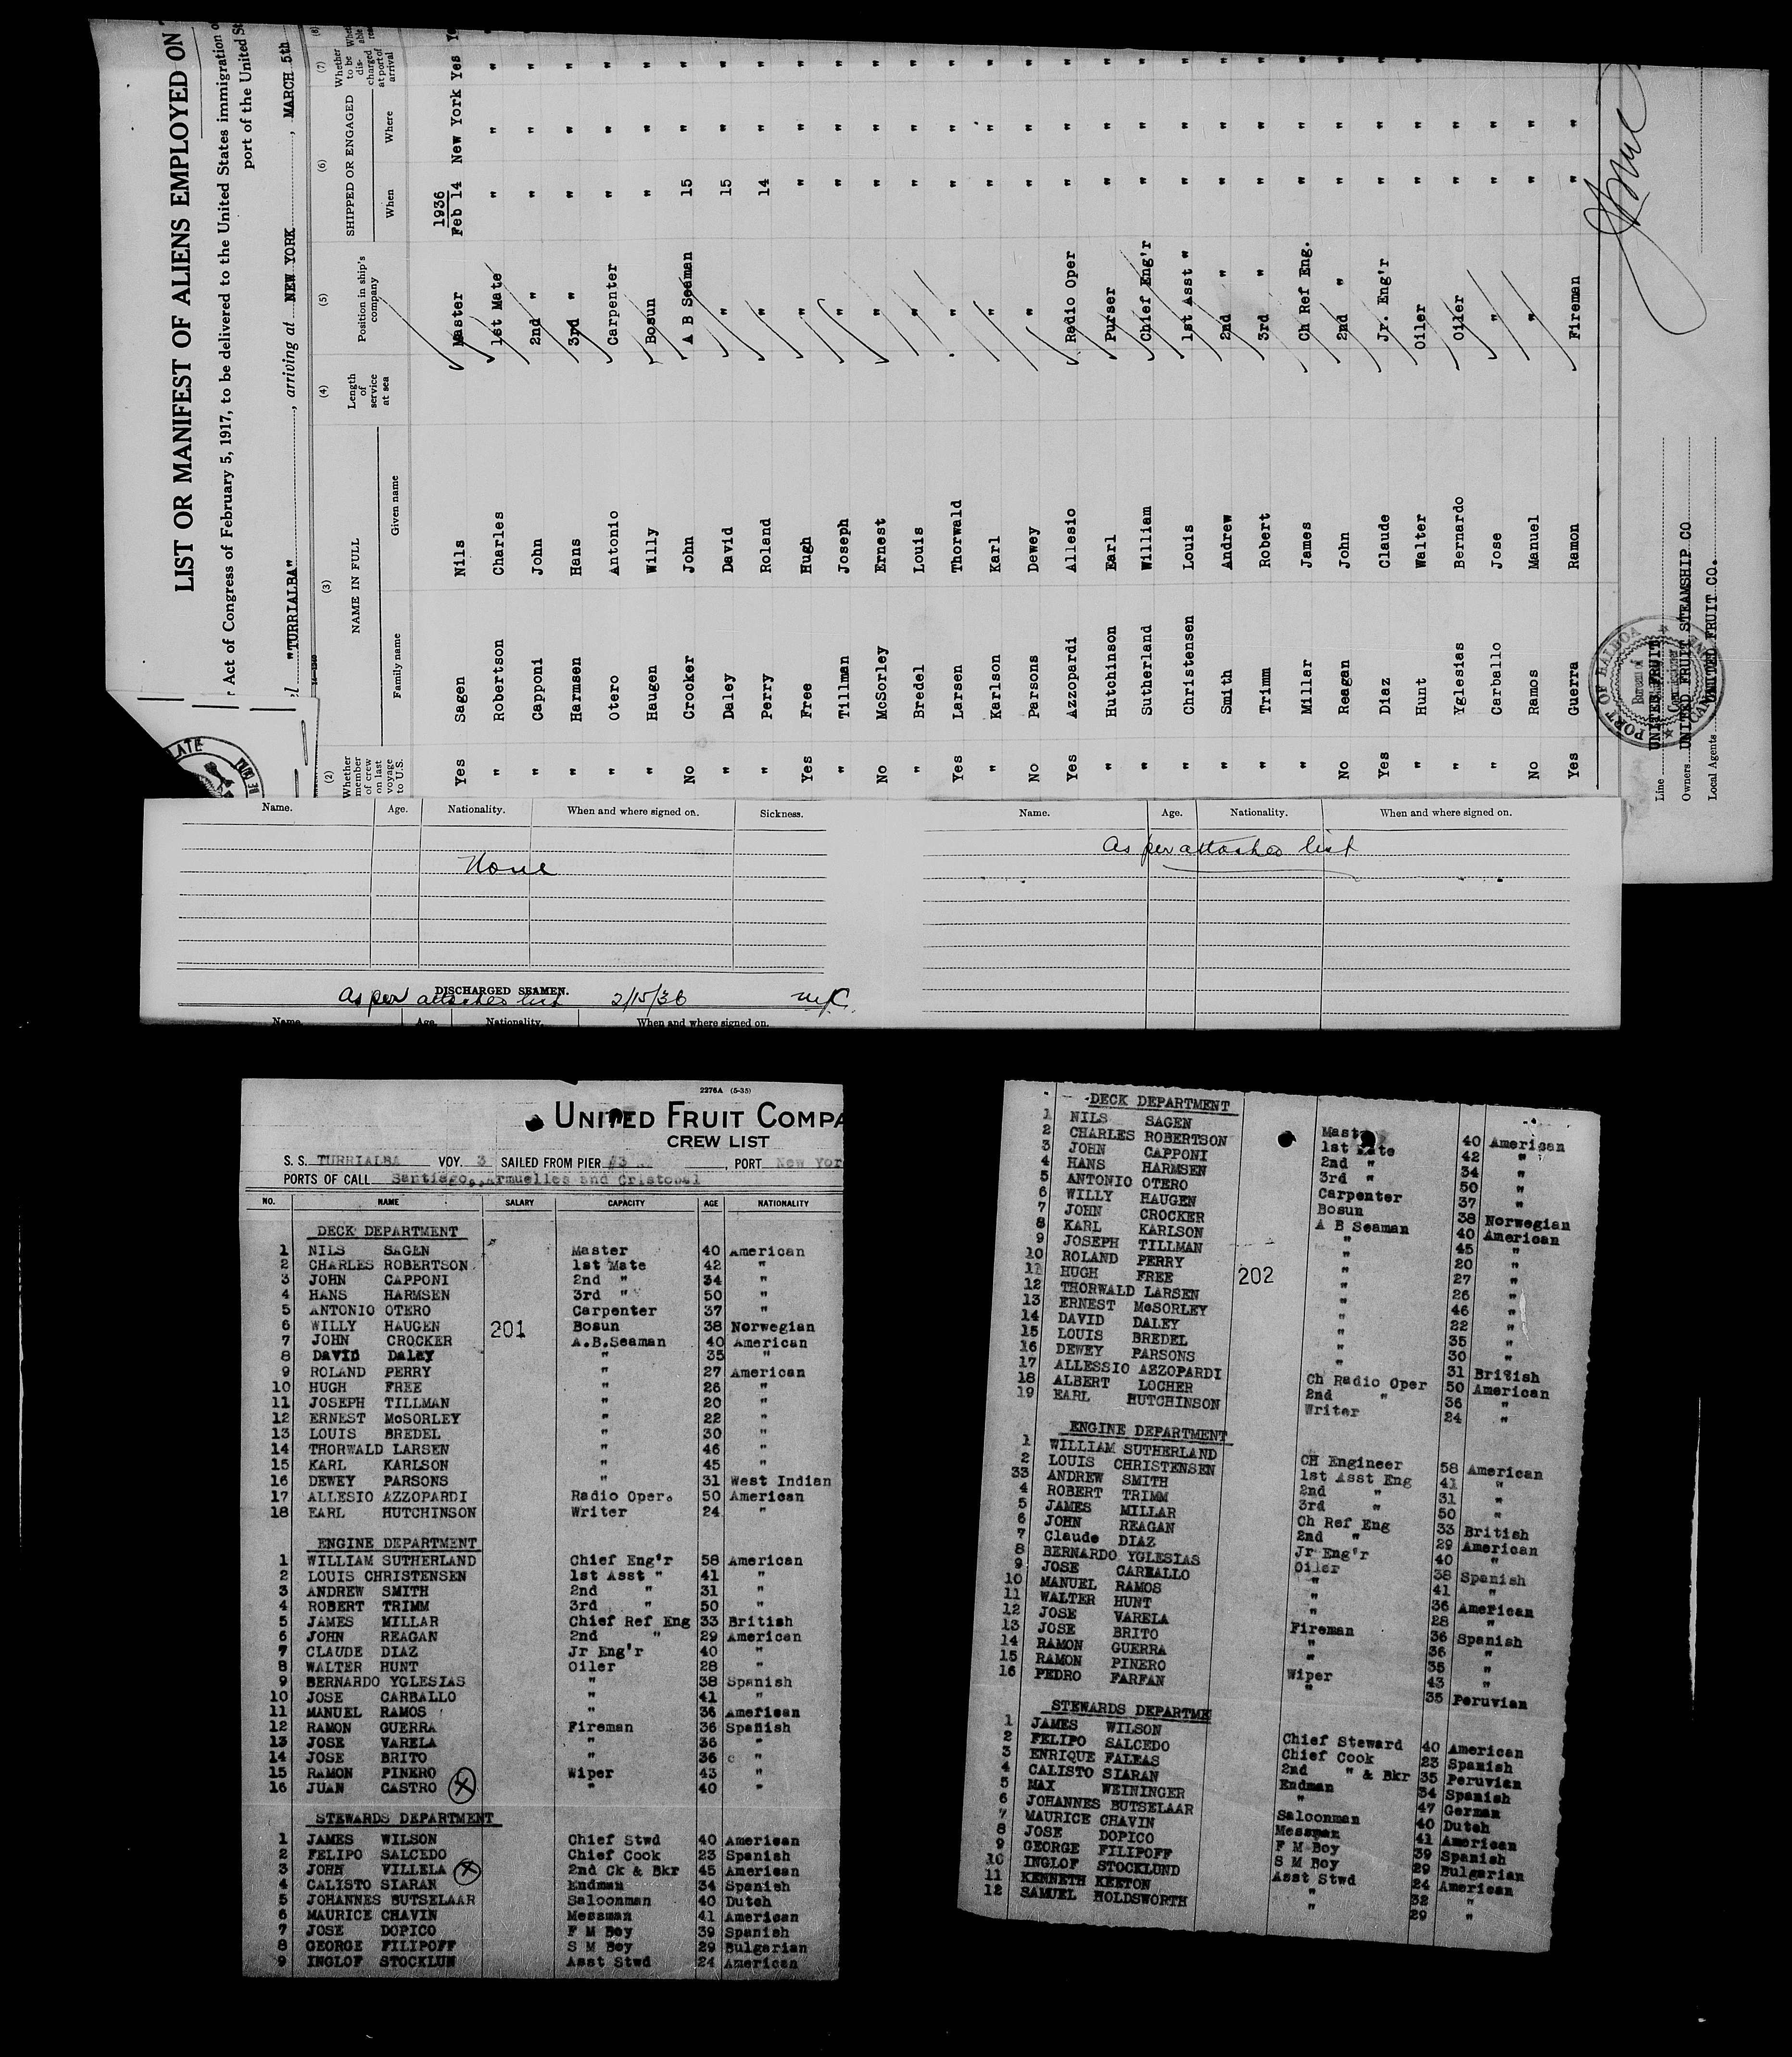 LIST OR MANIFEST OF ALIENS EMPLOYED ON
Act of Congress of February 5, 1917, to be delivered to the United States immigration
port of the United
"TURRIALBA" , arriving at NEW YORK , MARCH 5th
(2) (3) (4) (5) (6) (7) (8)
Whether member of crew on last voyage to U.S. NAME IN FULL Length of service at sea Position in ship's company SHIPPED OR ENGAGED Whether to be discharged at port of arrival
Family name Given name When Where
1936
Yes Sagen Nils Master Feb 14 New York Yes
" Robertson Charles 1st Mate " " "
" Capponi John 2nd " " " "
" Harmsen Hans 3rd " " " "
" Otero Antonio Carpenter " " "
" Haugen Willy Bosun " " "
No Crocker John A B Seaman 15 " "
" Daley David " 15 " "
" Perry Roland " 14 " "
Yes Free Hugh " " " "
" Tillman Joseph " " " "
No McSorley Ernest " " " "
" Bredel Louis " " " "
Yes Larsen Thorwald " " " "
" Karlson Karl " " " "
No Parsons Dewey " " " "
Yes Azzopardi Allesio Radio Oper " " "
" Hutchinson Earl Purser " " "
" Sutherland William Chief Eng'r " " "
" Christensen Louis 1st Asst " " " "
" Smith Andrew 2nd " " " "
" Trimm Robert 3rd " " " "
" Millar James Ch Ref Eng. " " "
No Reagan John 2nd " " " "
Yes Diaz Claude Jr. Eng'r " " "
" Hunt Walter Oiler " " "
" Yglesias Bernardo Oiler " "
" Carballo Jose " " "
No Ramos Manuel " " "
Yes Guerra Ramon Fireman " "
Line UNITED FRUIT
Owners UNITED FRUIT STEAMSHIP CO
Local Agents UNITED FRUIT CO.
PORT OF BALBOA
Bureau of
Name. Age. Nationality. When and where signed on. Sickness.
None
DISCHARGED SEAMEN.
As per attached list 2/15/36
Name. Age. Nationality. When and where signed on.
Name. Age. Nationality. When and where signed on.
As per attached list
2276A (5-35)
UNITED FRUIT COMPA
CREW LIST
S. S. TURRIALBA VOY. 3 SAILED FROM PIER #3 , PORT New Yor
PORTS OF CALL Santiago, Armuelles and Cristobal
NO. NAME SALARY CAPACITY AGE NATIONALITY
DECK DEPARTMENT
1 NILS SAGEN Master 40 American
2 CHARLES ROBERTSON 1st Mate 42 "
3 JOHN CAPPONI 2nd " 34 "
4 HANS HARMSEN 3rd " 50 "
5 ANTONIO OTERO Carpenter 37 "
6 WILLY HAUGEN 201 Bosun 38 Norwegian
7 JOHN CROCKER A.B.Seaman 40 American
8 DAVID DALEY " 35 "
9 ROLAND PERRY " 27 American
10 HUGH FREE " 26 "
11 JOSEPH TILLMAN " 20 "
12 ERNEST McSORLEY " 22 "
13 LOUIS BREDEL " 30 "
14 THORWALD LARSEN " 46 "
15 KARL KARLSON " 45 "
16 DEWEY PARSONS " 31 West Indian
17 ALLESIO AZZOPARDI Radio Oper. 50 American
18 EARL HUTCHINSON Writer 24 "
ENGINE DEPARTMENT
1 WILLIAM SUTHERLAND Chief Eng'r 58 American
2 LOUIS CHRISTENSEN 1st Asst " 41 "
3 ANDREW SMITH 2nd " 31 "
4 ROBERT TRIMM 3rd " 50 "
5 JAMES MILLAR Chief Ref Eng 33 British
6 JOHN REAGAN 2nd " 29 American
7 CLAUDE DIAZ Jr Eng'r 40 "
8 WALTER HUNT Oiler 28 "
9 BERNARDO YGLESIAS " 38 Spanish
10 JOSE CARBALLO " 41 "
11 MANUEL RAMOS " 36 American
12 RAMON GUERRA Fireman 36 Spanish
13 JOSE VARELA " 36 "
14 JOSE BRITO " 36 "
15 RAMON PINERO Wiper 43 "
16 JUAN CASTRO " 40 "
STEWARDS DEPARTMENT
1 JAMES WILSON Chief Stwd 40 American
2 FELIPO SALCEDO Chief Cook 23 Spanish
3 JOHN VILLELA 2nd Ck & Bkr 45 American
4 CALISTO SIARAN Endman 34 Spanish
5 JOHANNES BUTSELAAR Saloonman 40 Dutch
6 MAURICE CHAVIN Messman 41 American
7 JOSE DOPICO F M Boy 39 Spanish
8 GEORGE FILIPOFF S M Boy 29 Bulgarian
9 INGLOF STOCKLUN Asst Stwd 24 American
DECK DEPARTMENT
1 NILS SAGEN Master 40 American
2 CHARLES ROBERTSON 1st Mate 42 "
3 JOHN CAPPONI 2nd " 34 "
4 HANS HARMSEN 3rd " 50 "
5 ANTONIO OTERO Carpenter 37 "
6 WILLY HAUGEN Bosun 38 Norwegian
7 JOHN CROCKER A B Seaman 40 American
8 KARL KARLSON " 45 "
9 JOSEPH TILLMAN " 20 "
10 ROLAND PERRY " 27 "
11 HUGH FREE 202 " 26 "
12 THORWALD LARSEN " 46 "
13 ERNEST McSORLEY " 22 "
14 DAVID DALEY " 35 "
15 LOUIS BREDEL " 30 "
16 DEWEY PARSONS " 31 British
17 ALLESSIO AZZOPARDI Ch Radio Oper 50 American
18 ALBERT LOCHER 2nd " 36 "
19 EARL HUTCHINSON Writer 24 "
ENGINE DEPARTMENT
1 WILLIAM SUTHERLAND CH Engineer 58 American
2 LOUIS CHRISTENSEN 1st Asst Eng 41 "
33 ANDREW SMITH 2nd " 31 "
4 ROBERT TRIMM 3rd " 50 "
5 JAMES MILLAR Ch Ref Eng 33 British
6 JOHN REAGAN 2nd " 29 American
7 Claude DIAZ Jr Eng'r 40 "
8 BERNARDO YGLESIAS Oiler 38 Spanish
9 JOSE CARBALLO " 41 "
10 MANUEL RAMOS " 36 American
11 WALTER HUNT " 28 "
12 JOSE VARELA Fireman 36 Spanish
13 JOSE BRITO " 36 "
14 RAMON GUERRA " 35 "
15 RAMON PINERO Wiper 43 "
16 PEDRO FARFAN " 35 Peruvian
STEWARDS DEPARTME
1 JAMES WILSON Chief Steward 40 American
2 FELIPO SALCEDO Chief Cook 23 Spanish
3 ENRIQUE FALEAS 2nd " & Bkr 35 Peruvian
4 CALISTO SIARAN Endman 34 Spanish
5 MAX WEININGER " 47 German
6 JOHANNES BUTSELAAR Saloonman 40 Dutch
7 MAURICE CHAVIN Messman 41 American
8 JOSE DOPICO F M Boy 39 Spanish
9 GEORGE FILIPOFF S M Boy 29 Bulgarian
10 INGLOF STOCKLUND Asst Stwd 24 American
11 KENNETH KEETON " 32 "
12 SAMUEL HOLDSWORTH " 29 "